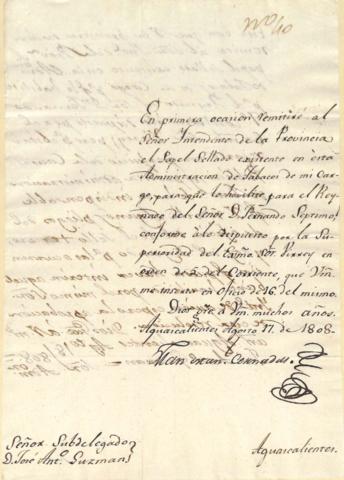 No 40
En primera ocasion remitiré al
Señor Intendente de la Provincia
el Papel Sellado existente en esta
Administracion de Tabacos de mi Car-
go, para que lo havilite para el Rey-
nado del Señor D. Fernando Septimo,
conforme à lo dispuesto por la Su-
perioridad del Exmo. Sor. Virrey en
orden de 2 del Corriente, que Vm.
me inserta en Oficio de 16. del mismo.
Dios gûe à Vm. muchos años.
Aguascalientes Agosto 17. de 1808.
Señor Subdelegado
D. José Anto. Guzman
Aguascalientes.